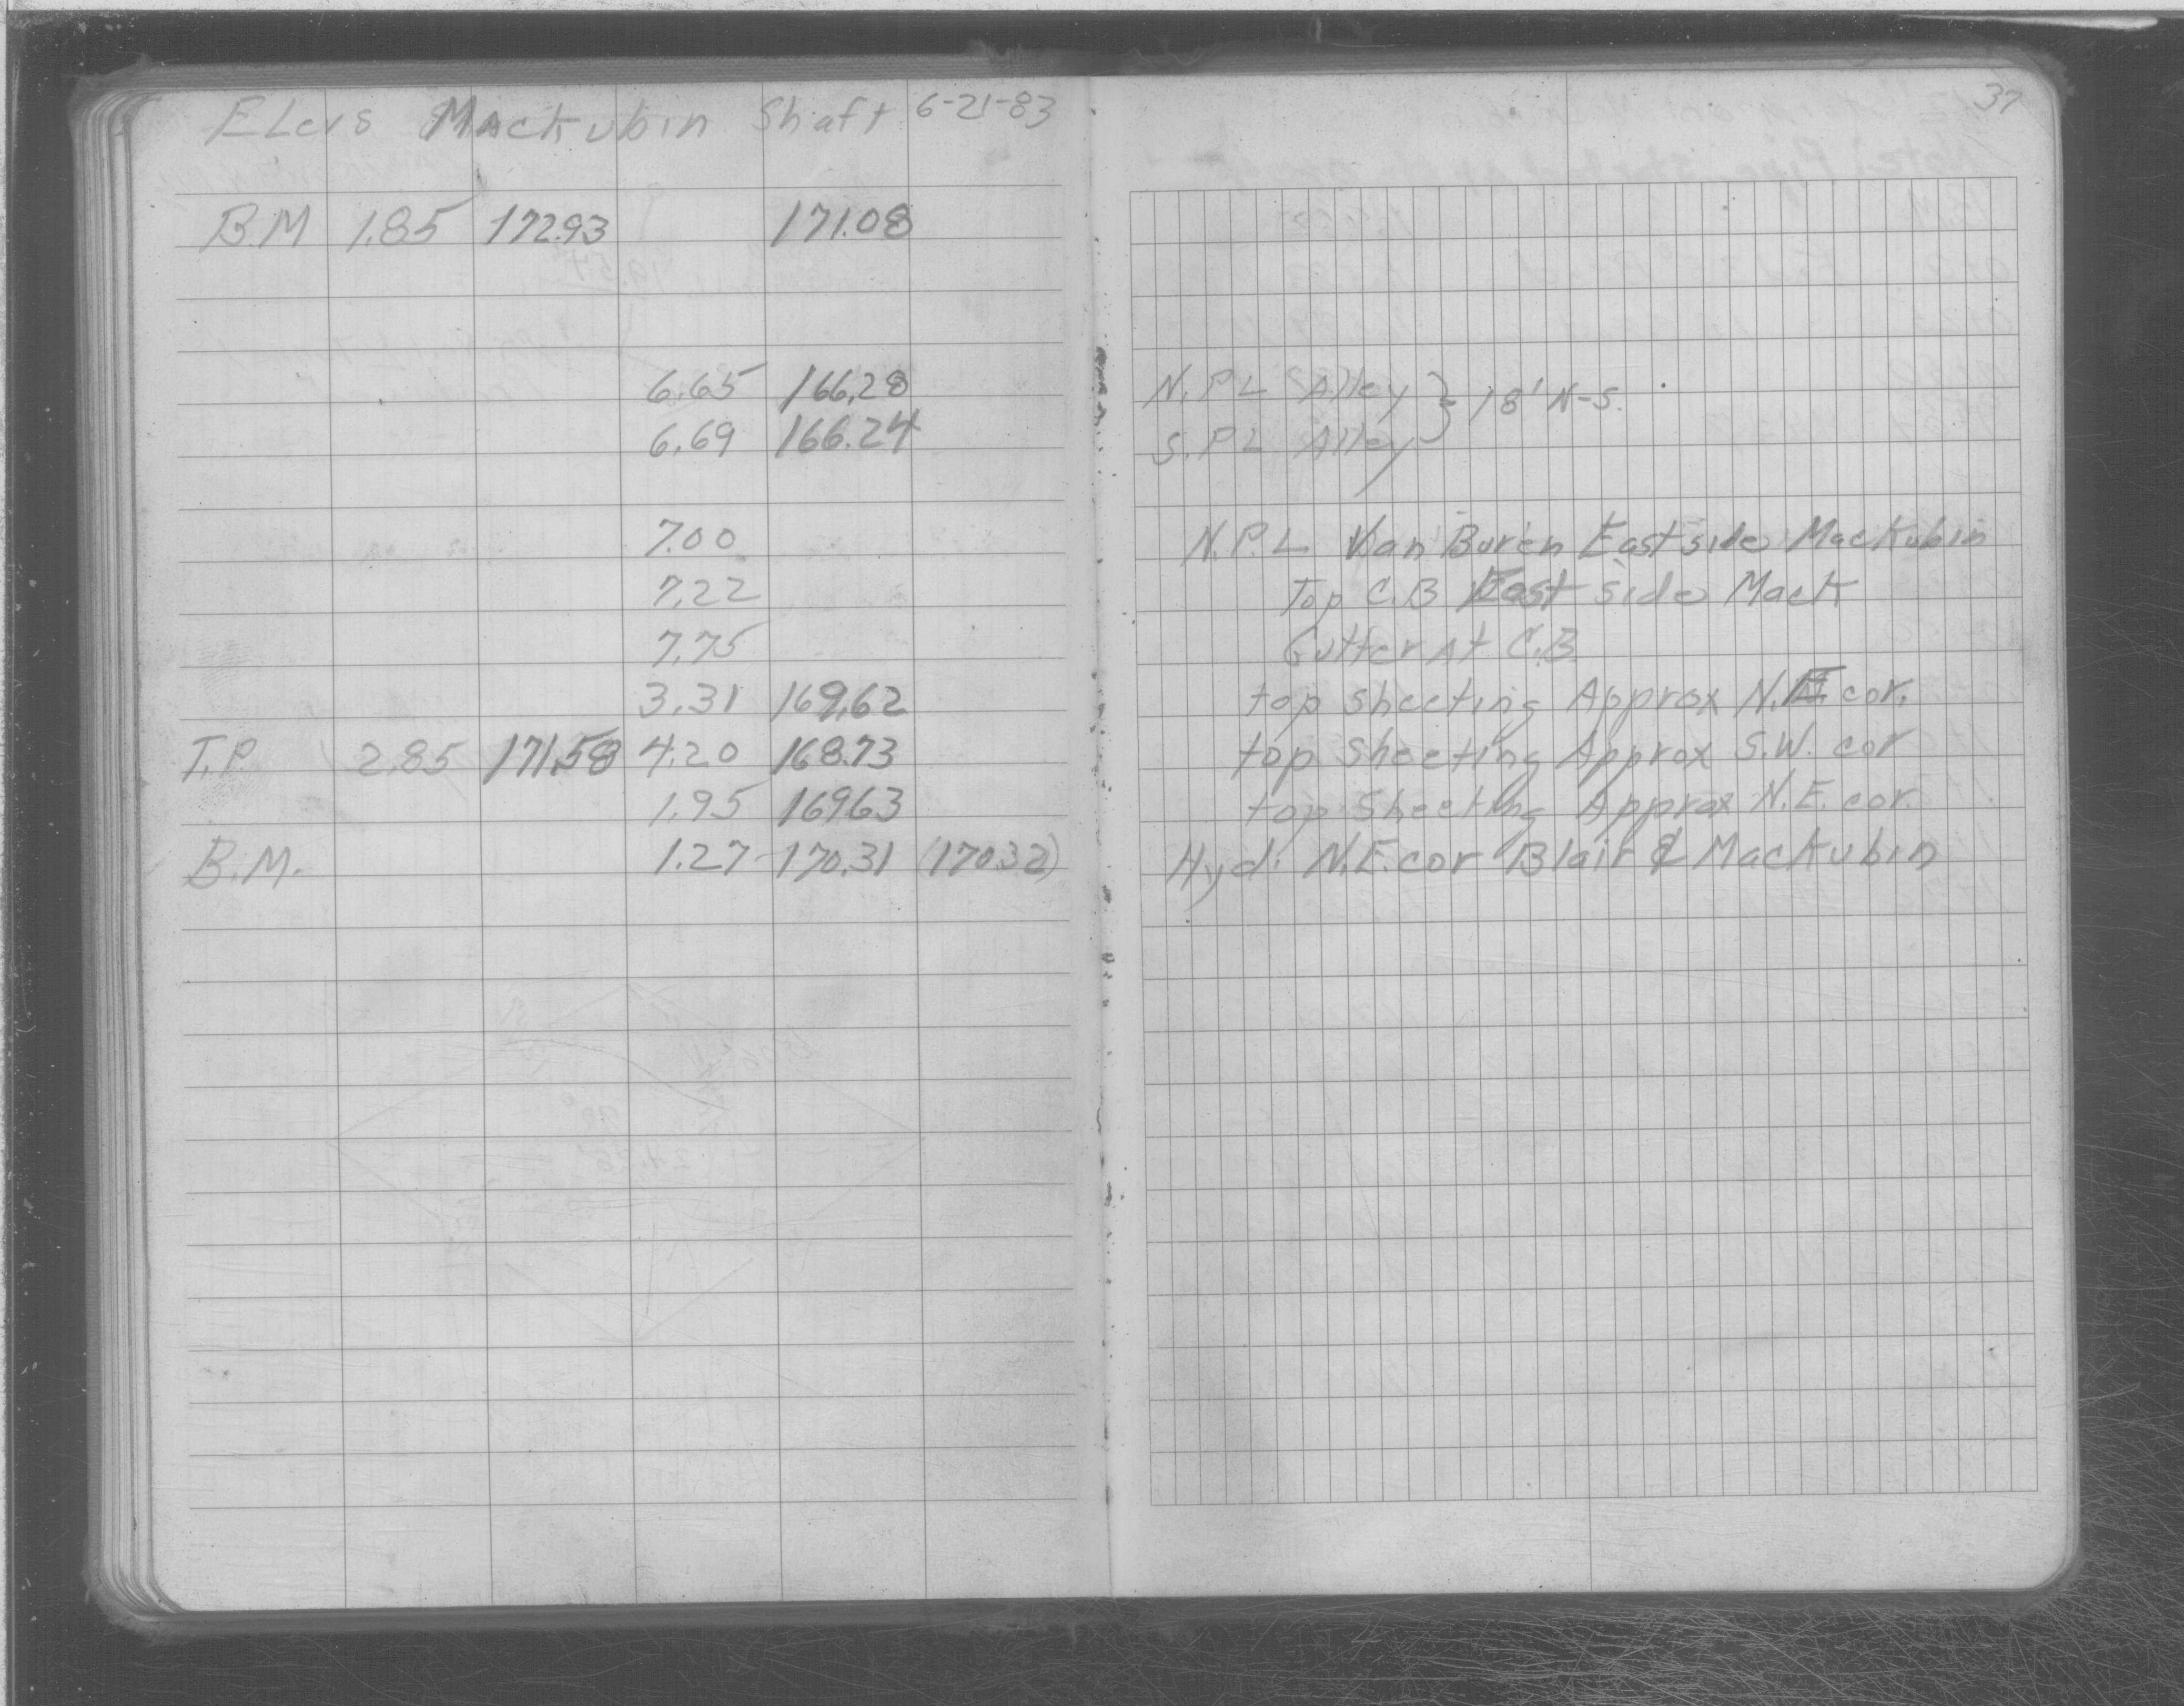 37
Elevs Mackubin Shaft 6-21-83
B.M 1.85 172.93 171.08
6.65 166.28 N.P.L Alley } 18' N-S.
6.69 166.24 S.P.L Alley
7.00 N.P.L Van Buren East side Mackubin
7.22 Top C.B East side Mack
7.75 Gutter At C.B
3.31 169.62 top sheeting Approx N.E. cor.
T.P. 2.85 171.58 4.20 168.73 top sheeting Approx S.W. cor
1.95 169.63 top sheeting Approx N.E. cor.
B.M. 1.27 170.31 (170.32) Hyd. N.E. cor Blair & Mackubin